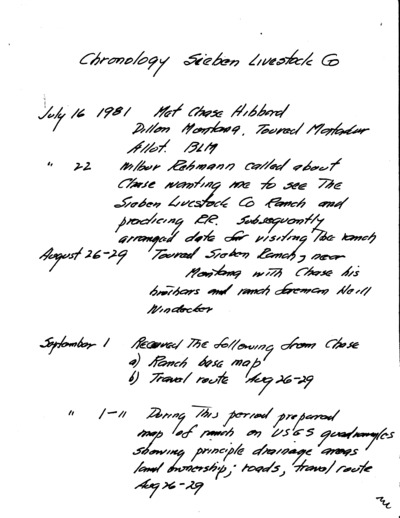 Chronology Sieben Livestock Co
July 16 1981 Met Chase Hibbard
Dillon Montana. Toured Matador
Allot. BLM
" 22 Wilbur Rehmann called about
Chase wanting me to see The
Sieben Livestock Co Ranch and
practicing RR. Subsequently
arranged date for visiting The ranch
August 26-29 Toured Sieben Ranch, near
Montana with Chase his
brothers and ranch foreman Neill
September 1 Received The following from Chase
a) Ranch base map
b) Travel route Aug 26-29
" 1-11 During This period prepared
map of ranch on USGS quadrangles
showing principle drainage areas
land ownership; roads, travel route
Aug 26-29